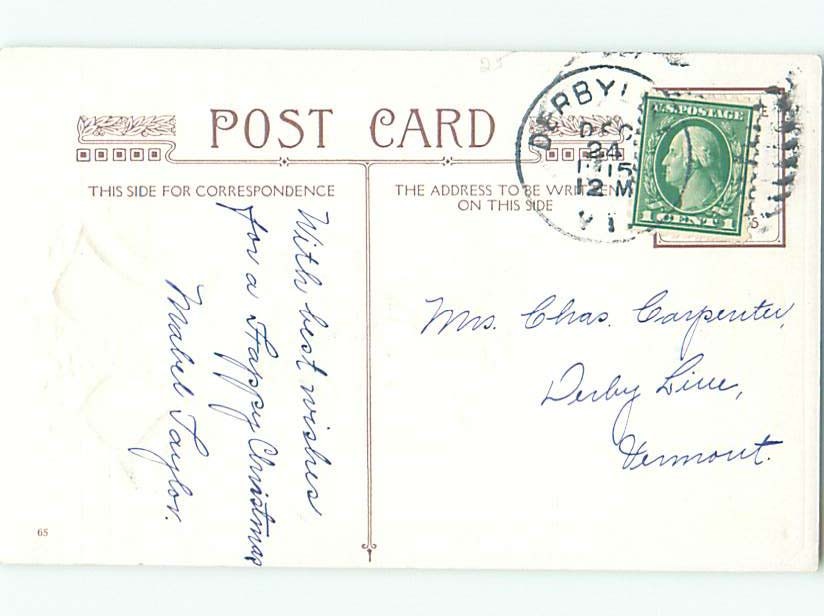 25
POST CARD
THIS SIDE FOR CORRESPONDENCE
With best wishes
for a Happy Christmas
Mabel Taylor.
65
THE ADDRESS TO BE WRITTEN
ON THIS SIDE
DERBY L
DEC
24
1915
12 M
VT
U.S. POSTAGE
1 CENT 1
Mrs. Chas. Carpenter,
Derby Line,
Vermont.